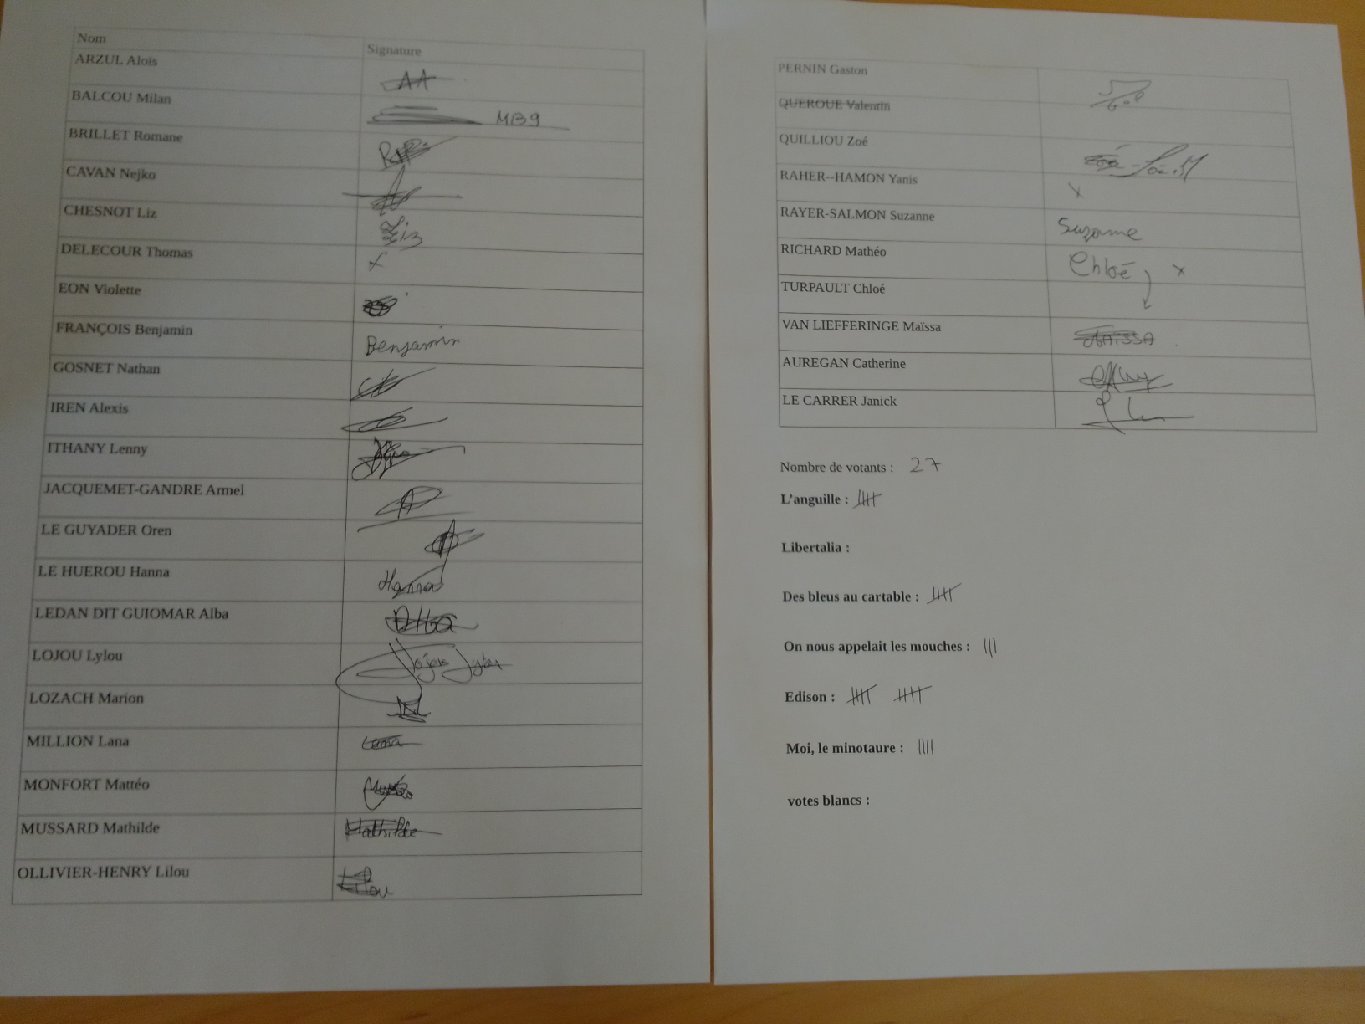 Nom Signature
ARZUL Aloïs AA
BALCOU Milan MB9
BRILLET Romane
CAVAN Nejko
CHESNOT Liz Liz
DELECOUR Thomas x
EON Violette
FRANÇOIS Benjamin Benjamin
GOSNET Nathan
IREN Alexis
ITHANY Lenny
JACQUEMET-GANDRE Armel
LE GUYADER Oren
LE HUEROU Hanna Hanna
LEDAN DIT GUIOMAR Alba Alba
LOJOU Lylou Lojou Lylou
LOZACH Marion
MILLION Lana Lana
MONFORT Mattéo
MUSSARD Mathilde Mathilde
OLLIVIER-HENRY Lilou Lilou
PERNIN Gaston
QUEROUE Valentin
QUILLIOU Zoé
RAHER--HAMON Yanis x
RAYER-SALMON Suzanne Suzanne
RICHARD Mathéo Chloé x
TURPAULT Chloé
VAN LIEFFERINGE Maïssa MAÏSSA
AUREGAN Catherine
LE CARRER Janick
Nombre de votants : 27
L'anguille :
Libertalia :
Des bleus au cartable :
On nous appelait les mouches : |||
Edison :
Moi, le minotaure : ||||
votes blancs :